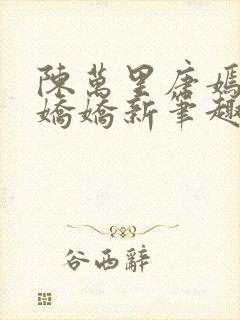 陳萬里唐嫣
嬌嬌新筆趣
谷西辭